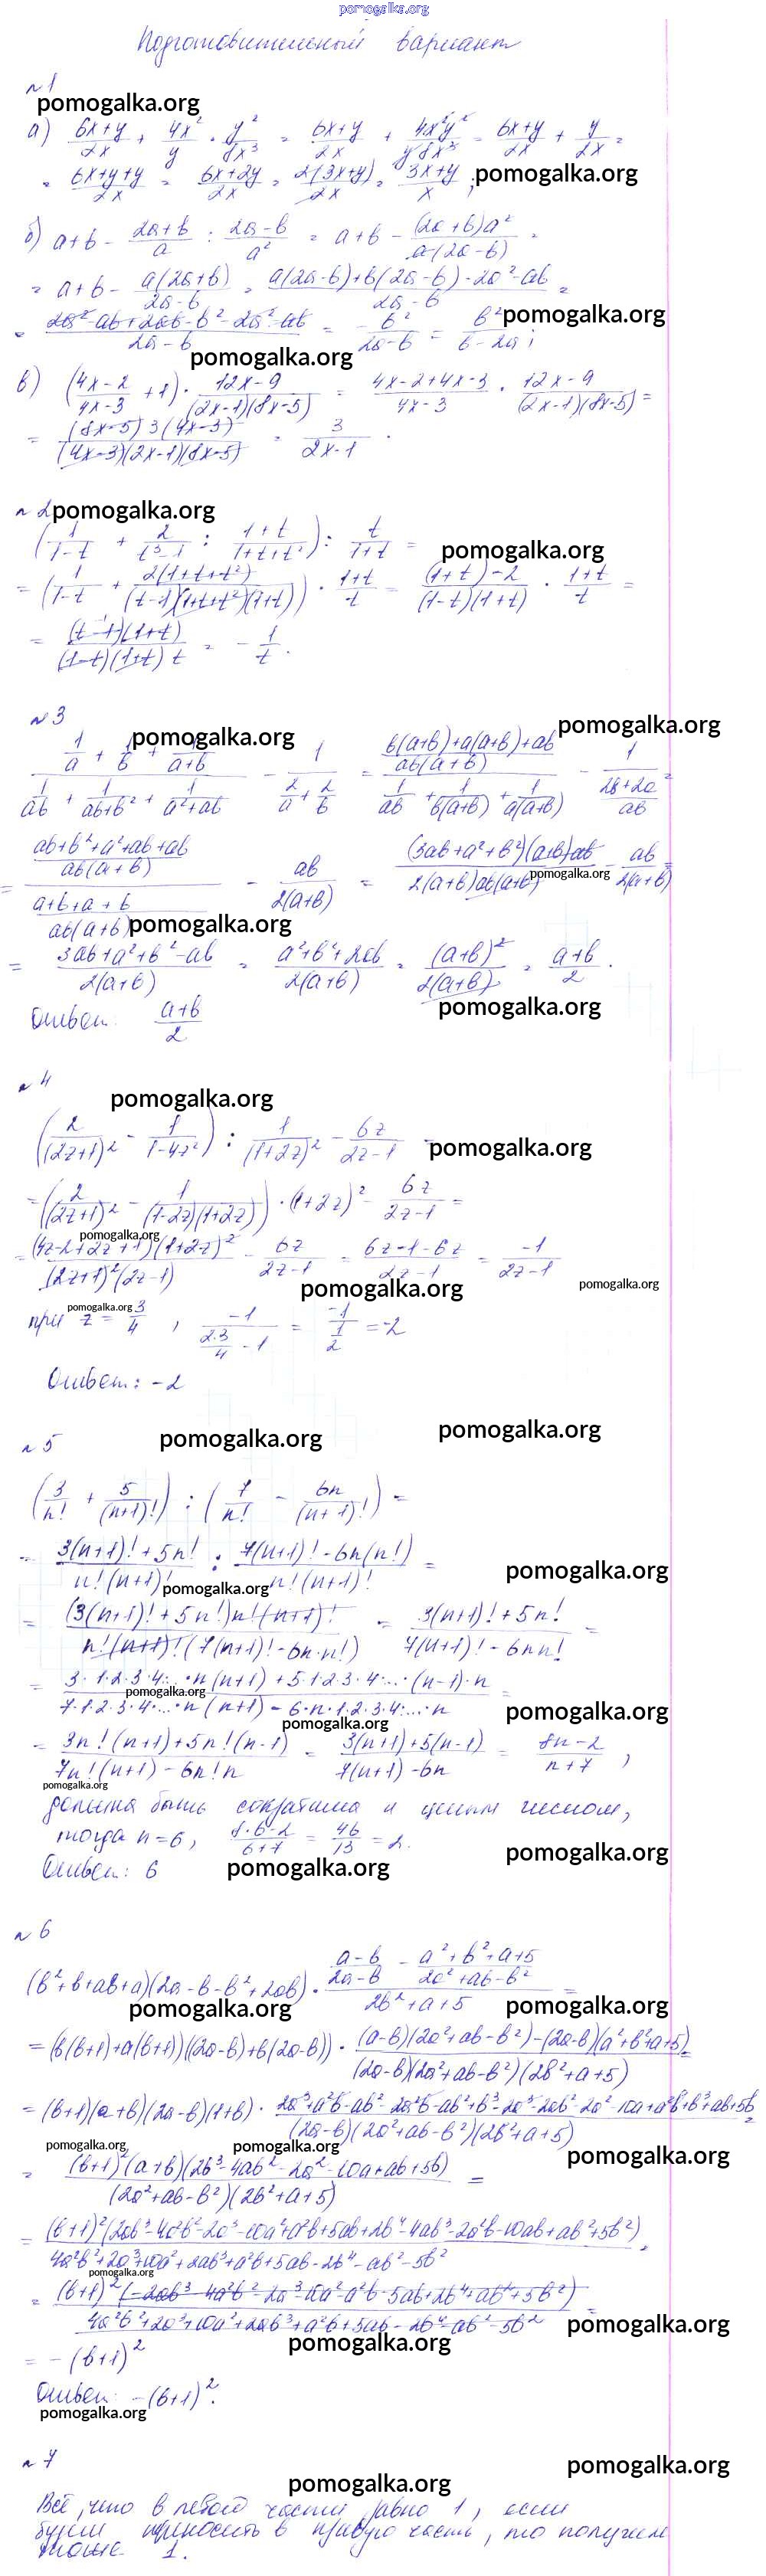 pomogalka.org
Подготовительный вариант
№1
pomogalka.org
а) (6x+y)/(2x) + (4x²)/y · y²/(8x³) = (6x+y)/(2x) + (4x²y²)/(y8x³) = (6x+y)/(2x) + y/(2x) =
= (6x+y+y)/(2x) = (6x+2y)/(2x) = 2(3x+y)/(2x) = (3x+y)/x ; pomogalka.org
б) a+b - (2a+b)/a : (2a-b)/a² = a+b - (2a+b)a²/(a(2a-b)) =
= a+b - a(2a+b)/(2a-b) = (a(2a-b)+b(2a-b)-2a²-ab)/(2a-b) =
= (2a²-ab+2ab-b²-2a²-ab)/(2a-b) = -b²/(2a-b) = b²/(b-2a) ; pomogalka.org
pomogalka.org
в) ((4x-2)/(4x-3) + 1) · (12x-9)/((2x-1)(8x-5)) = (4x-2+4x-3)/(4x-3) · (12x-9)/((2x-1)(8x-5)) =
= (8x-5)3(4x-3)/((4x-3)(2x-1)(8x-5)) = 3/(2x-1) .
№2 pomogalka.org
(1/(1-t) + 2/(t³-1) : (1+t)/(1+t+t²)) : t/(1+t) = pomogalka.org
= (1/(1-t) + 2(1+t+t²)/((t-1)(1+t+t²)(1+t))) · (1+t)/t = ((1+t)-2)/((1-t)(1+t)) · (1+t)/t =
= (t-1)(1+t)/((1-t)(1+t)t) = -1/t .
№3
pomogalka.org pomogalka.org
(1/a + 1/b + 1/(a+b))/(1/ab + 1/(ab+b²) + 1/(a²+ab)) - 1/(2/a + 2/b) = ((b(a+b)+a(a+b)+ab)/(ab(a+b)))/(1/ab + 1/(b(a+b)) + 1/(a(a+b))) - 1/((2b+2a)/ab) =
= ((ab+b²+a²+ab+ab)/(ab(a+b)))/((a+b+a+b)/(ab(a+b))) - ab/(2(a+b)) = (3ab+a²+b²)(a+b)ab/(2(a+b)ab(a+b)) - ab/(2(a+b)) =
pomogalka.org
pomogalka.org
= (3ab+a²+b²-ab)/(2(a+b)) = (a²+b²+2ab)/(2(a+b)) = (a+b)²/(2(a+b)) = (a+b)/2 .
pomogalka.org
Ответ: (a+b)/2
№4
pomogalka.org
(2/(2z+1)² - 1/(1-4z²)) : 1/(1+2z)² - 6z/(2z-1) = pomogalka.org
= (2/(2z+1)² - 1/((1-2z)(1+2z))) · (1+2z)² - 6z/(2z-1) =
pomogalka.org
= (4z-2+2z+1)(1+2z)²/((2z+1)²(2z-1)) - 6z/(2z-1) = (6z-1-6z)/(2z-1) = -1/(2z-1)
pomogalka.org pomogalka.org
pomogalka.org
при z = 3/4 , -1/(2·3/4 - 1) = -1/(1/2) = -2
Ответ: -2
№5
pomogalka.org pomogalka.org
(3/n! + 5/(n+1)!) : (7/n! - 6n/(n+1)!) =
= (3(n+1)!+5n!)/(n!(n+1)!) : (7(n+1)!-6n(n!))/(n!(n+1)!) = pomogalka.org
pomogalka.org
= (3(n+1)!+5n!)n!(n+1)!/(n!(n+1)!(7(n+1)!-6n·n!)) = (3(n+1)!+5n!)/(7(n+1)!-6nn!) =
= (3·1·2·3·4...·n(n+1)+5·1·2·3·4...·(n-1)·n)/(7·1·2·3·4·...·n(n+1)-6·n·1·2·3·4...·n) =
pomogalka.org pomogalka.org
pomogalka.org
= (3n!(n+1)+5n!(n-1))/(7n!(n+1)-6n!n) = (3(n+1)+5(n-1))/(7(n+1)-6n) = (8n-2)/(n+7) ,
pomogalka.org
должна быть сократима и целым числом,
тогда n=6, (8·6-2)/(6+7) = 46/13 = 2.
Ответ: 6 pomogalka.org pomogalka.org
№6
(b²+b+ab+a)(2a-b-b²+2ab) · ((a-b)/(2a-b) - (a²+b²+a+5)/(2a²+ab-b²))/(2b²+a+5) =
pomogalka.org pomogalka.org
= (b(b+1)+a(b+1))((2a-b)+b(2a-b)) · ((a-b)(2a²+ab-b²)-(2a-b)(a²+b²+a+5))/((2a-b)(2a²+ab-b²)(2b²+a+5)) =
= (b+1)(a+b)(2a-b)(1+b) · (2a³+a²b-ab²-2a²b-ab²+b³-2a³-2ab²-2a²-10a+a²b+b³+ab+5b)/((2a-b)(2a²+ab-b²)(2b²+a+5)) =
pomogalka.org pomogalka.org pomogalka.org
= (b+1)²(a+b)(2b³-4ab²-2a²-10a+ab+5b)/((2a²+ab-b²)(2b²+a+5)) =
= (b+1)²(2ab³-4a²b²-2a³-10a²+a²b+5ab+2b⁴-4ab³-2a²b-10ab+ab²+5b²)/(4a²b²+2a³+10a²+2ab³+a²b+5ab-2b⁴-ab²-5b²) =
pomogalka.org
= (b+1)²(-2ab³-4a²b²-2a³-10a²-a²b-5ab+2b⁴+ab²+5b²)/(4a²b²+2a³+10a²+2ab³+a²b+5ab-2b⁴-ab²-5b²) =
pomogalka.org
pomogalka.org
= -(b+1)²
Ответ: -(b+1)².
pomogalka.org
№7
pomogalka.org
pomogalka.org
Всё, что в левой части равно 1, если
будем приносить в правую часть, то получим
тоже 1.